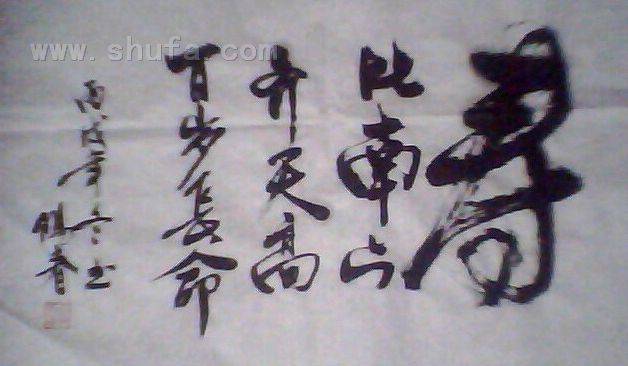 寿
比南山
齐天高
百岁长命
丙戌年冬书
www.shufa.com